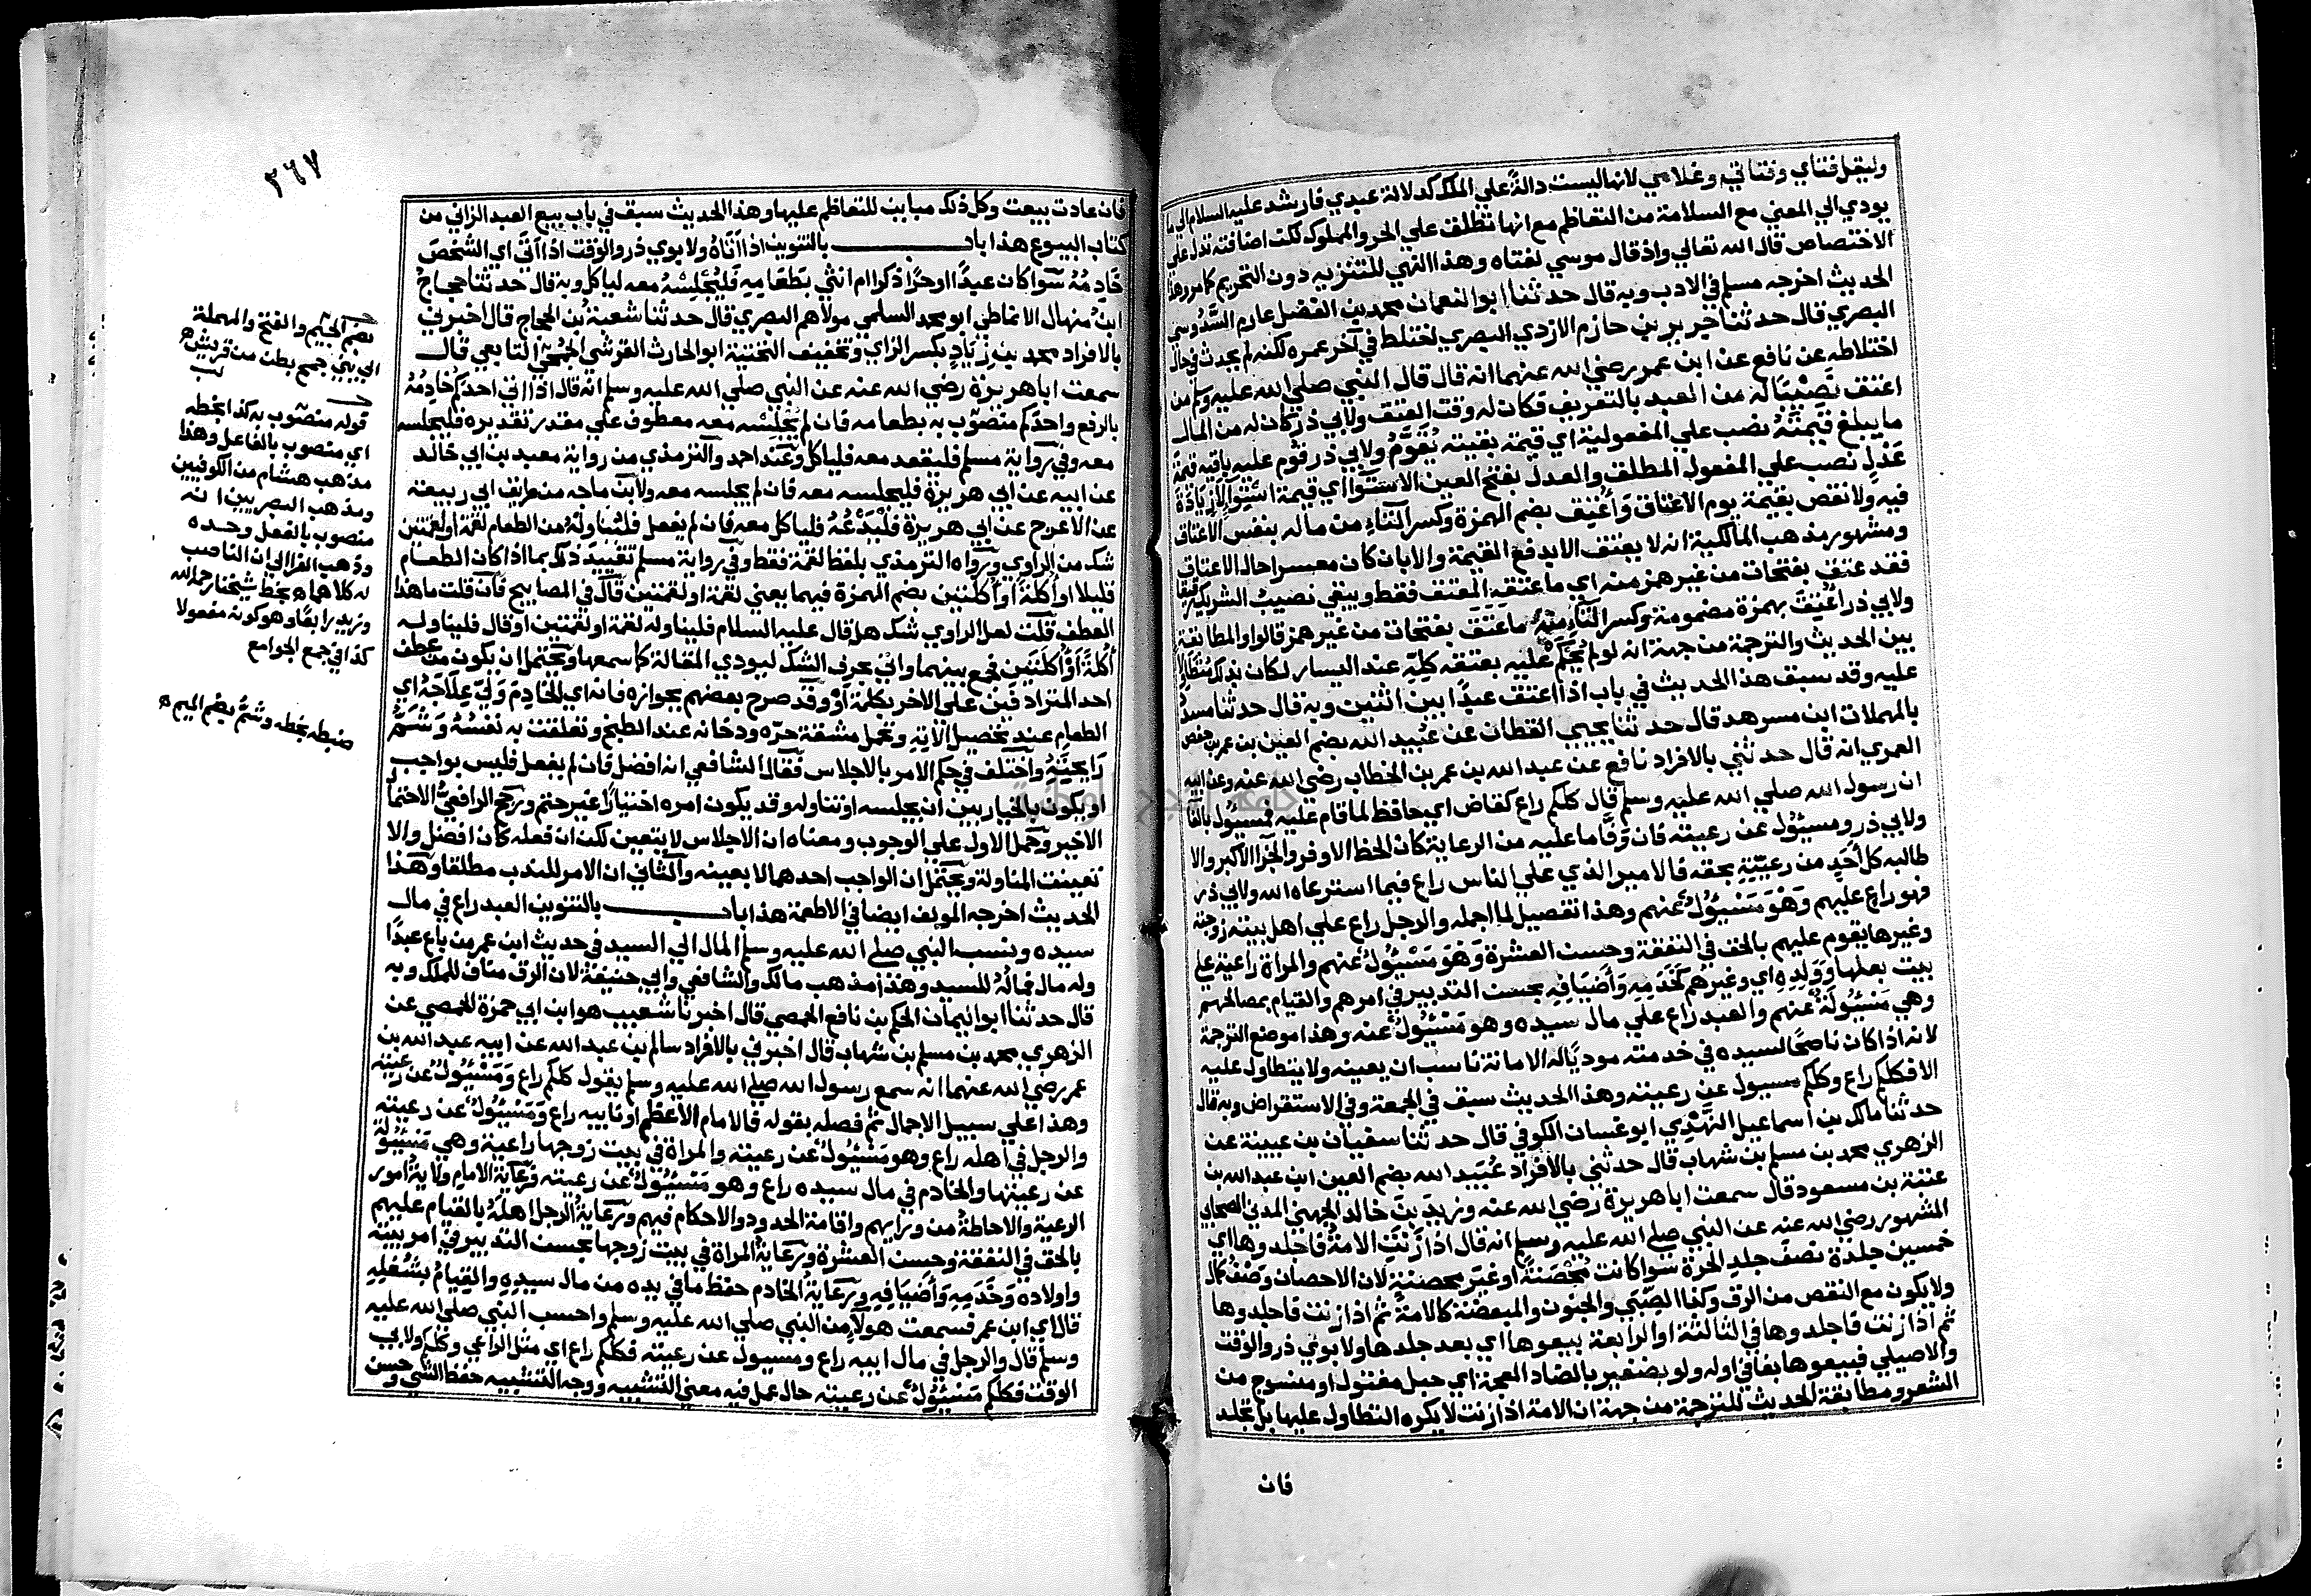 وليقل فتاي وفتاتي وغلامي لانها ليست دالة علي الملك كدلالة عبدي فارشد عليه السلام الي ما
يودي الي المعني مع السلامة من التعاظم مع انها تطلق علي الحر والمملوك لكن اضافته تدل علي
الاختصاص قال الله تعالي واذ قال موسي لفتاه وهذا النهي للتنزيه دون التحريم كما مر وهذا
الحديث اخرجه مسلم في الادب وبه قال حدثنا ابو النعمان محمد بن الفضل عارم السدوسي
البصري قال حدثنا جرير بن حازم الازدي البصري اختلط في آخر عمره لكنه لم يحدث في حال
اختلاطه عن نافع عن ابن عمر رضي الله عنهما انه قال قال النبي صلي الله عليه وسلم من
اعتق نصيبا له من العبد بالتعريف فكان له وقت العتق ولابي ذر كان له من المال
ما يبلغ قيمته نصب علي المفعولية اي قيمة بقيته يقوم ولابي ذر قوم عليه باقيه قيمة
عدل نصب علي المفعول المطلق والعدل بفتح العين الاستوا اي قيمة استوا لا زيادة
فيه ولا نقص بقيمة يوم الاعتاق وأعتق بضم الهمزة وكسر التاء من ماله بنفس الاعتاق
ومشهور مذهب المالكية انه لا يعتق الا بدفع القيمة والا بان كان معسرا حال الاعتاق
فقد عتق بفتحات من غير همز منه اي ما عتقه المعتق فقط ويبقي نصيب الشريك رقيقا
ولابي ذر اعتق بهمزة مضمومة وكسر التاء منه ما عتق بفتحات من غير همز قالوا والمطابقة
بين الحديث والترجمة من جهة انه لو لم يحكم عليه بعتقه كله عند اليسار لكان بذلك متطاولا
عليه وقد سبق هذا الحديث في باب اذا اعتق عبدا بين اثنين وبه قال حدثنا مسدد
بالمهملات ابن مسرهد قال حدثنا يحيي القطان عن عبيد الله بضم العين بن عمر بن حفص
العمري انه قال حدثني بالافراد نافع عن عبد الله بن عمر بن الخطاب رضي الله عنه وعن ابيه
ان رسول الله صلي الله عليه وسلم قال كلكم راع كقاض اي حافظ لما قام عليه فمسيول بالفا
ولابي ذر ومسيول عن رعيته فان وفا ما عليه من الرعاية كان الحظ الاوفر والجزا الاكبر والا
طالبه كل أحد من رعيته بحقه فالامير الذي علي الناس راع فيما استرعاه الله ولابي ذر
فهو راع عليهم وهو مسيول عنهم وهذا تفصيل لما اجمله والرجل راع علي اهل بيته زوجته
وغيرها يقوم عليهم بالحق في النفقة وحسن العشرة وهو مسيول عنهم والمراة راعية علي
بيت بعلها وولده اي وغيرهم كخدمه وأضيافه بحسن التدبير في امرهم والقيام بمصالحهم
وهي مسيولة عنهم والعبد راع علي مال سيده وهو مسيول عنه وهذا موضع الترجمة
لانه اذا كان ناصحا لسيده في خدمته موديا له الامانة ناسب ان يعينه ولا يتطاول عليه
الا فكلكم راع وكلكم مسيول عن رعيته وهذا الحديث سبق في الجمعة وفي الاستقراض وبه قال
حدثنا مالك بن اسماعيل النهدي ابو غسان الكوفي قال حدثنا سفيان بن عيينة عن
الزهري محمد بن مسلم بن شهاب قال حدثني بالافراد عبيد الله بضم العين ابن عبد الله بن
عتبة بن مسعود قال سمعت ابا هريرة رضي الله عنه وزيد بن خالد الجهني المدني الصحابي
المشهور رضي الله عنه عن النبي صلي الله عليه وسلم انه قال اذا زنت الامة فاجلدوها اي
خمسين جلدة نصف جلد الحرة سوا كانت محصنة او غير محصنة لان الاحصان وصف كمال
ولا يكون مع النقص من الرق وكذا الصبي والجنون والمبعضة كالامة ثم اذا زنت فاجلدوها
ثم اذا زنت فاجلدوها في الثالثة او الرابعة بيعوها اي بعد جلدها ولابوي ذر والوقت
والاصيلي فبيعوها بفا في اوله ولو بضفير بالضاد المعجمة اي حبل مفتول او منسوج من
الشعر ومطابقة الحديث للترجمة من جهة ان الامة اذا زنت لا يكره التطاول عليها بل تجلد
فان
٢٦٧
فان عادت بيعت وكل ذلك مباين للتعاظم عليها وهذا الحديث سبق في باب بيع العبد الزاني من
كتاب البيوع هذا باب بالتنوين اذا أتاه ولابوي ذر والوقت اذا أتي اي الشخص
خادمه سوا كان عبدا او حرا ذكرا ام انثي بطعامه فليجلسه معه لياكل وبه قال حدثنا حجاج
ابن منهال الانماطي ابو محمد السلمي مولاهم البصري قال حدثنا شعبة بن الحجاج قال اخبرني
بالافراد محمد بن زياد بكسر الزاي وتخفيف التحتية ابو الحارث القرشي الجمحي التابعي قال
سمعت ابا هريرة رضي الله عنه عن النبي صلي الله عليه وسلم انه قال اذا اتي احدكم خادمه
بالرفع واحدكم منصوب به بطعامه فان لم يجلسه معه معطوف علي مقدر تقديره فليجلسه
معه وفي رواية مسلم فليقعد معه فلياكل وعند احمد والترمذي من رواية معبد بن ابي خالد
عن ابيه عن ابي هريرة فليجلسه معه فان لم يجلسه معه ولابن ماجه من طريق ابي ربيعة
عن الاعرج عن ابي هريرة فليدعه فلياكل معه فان لم يفعل فليناوله من الطعام لقمة او لقمتين
شك من الراوي ورواه الترمذي بلفظ لقمة فقط وفي رواية مسلم تقييد ذلك بما اذا كان الطعام
قليلا او أكلة او أكلتين بضم الهمزة فيهما يعني لقمة او لقمتين قال في المصابيح فان قلت ما هذا
العطف قلت لعل الراوي شك هل قال عليه السلام فليناوله لقمة او لقمتين او قال فليناوله
أكلة او أكلتين فجمع بينهما واتي بحرف الشك ليودي المقالة كما سمعها ويحتمل ان يكون من عطف
احد المترادفين علي الاخر بكلمة أو وقد صرح بعضهم بجوازه فانه اي الخادم ولي علاجه اي
الطعام عند تحصيل الاته وتحمل مشقة حره ودخانه عند الطبخ وتعلقت به نفسه وشم
رايحته واختلف في حكم الامر بالاجلاس فقال الشافعي انه افضل فان لم يفعل فليس بواجب
او يكون بالخيار بين ان يجلسه او تناوله وقد يكون امره اختيارا غير حتم ورجح الرافعي الاحتمال
الاخير وحمل الاول علي الوجوب ومعناه ان الاجلاس لا يتعين لكن ان فعله كان افضل والا
تعينت المناولة ويحتمل ان الواجب احدهما لا بعينه والثاني ان الامر للندب مطلقا وهذا
الحديث اخرجه المولف ايضا في الاطعمة هذا باب بالتنوين العبد راع في مال
سيده ونسب النبي صلي الله عليه وسلم المال الي السيد في حديث ابن عمر من باع عبدا
وله مال فماله للسيد وهذا مذهب مالك والشافعي وابي حنيفة لان الرق مناف للملك وبه
قال حدثنا ابو اليمان الحكم بن نافع الحمصي قال اخبرنا شعيب هو ابن ابي حمزة الحمصي عن
الزهري محمد بن مسلم بن شهاب قال اخبرني بالافراد سالم بن عبد الله عن ابيه عبد الله بن
عمر رضي الله عنهما انه سمع رسول الله صلي الله عليه وسلم يقول كلكم راع ومسيول عن رعيته
وهذا علي سبيل الاجمال ثم فصله بقوله فالامام الاعظم او نايبه راع ومسيول عن رعيته
والرجل في اهله راع وهو مسيول عن رعيته والمراة في بيت زوجها راعية وهي مسيولة
عن رعيتها والخادم في مال سيده راع وهو مسيول عن رعيته فرعاية الامام ولاية امور
الرعية والاحاطة من ورايهم واقامة الحدود والاحكام فيهم ورعاية الرجل اهله بالقيام عليهم
بالحق في النفقة وحسن العشرة ورعاية المراة في بيت زوجها بحسن التدبير في امر بيته
واولاده وخدمه وأضيافه ورعاية الخادم حفظ ما في يده من مال سيده والقيام بشغله
قال اي ابن عمر فسمعت هولا من النبي صلي الله عليه وسلم واحسب النبي صلي الله عليه
وسلم قال والرجل في مال ابيه راع ومسيول عن رعيته فكلكم راع اي مثل الراعي وكلكم ولابي
الوقت فكلكم مسيول عن رعيته حال عمل فيه معني التشبيه ووجه التشبيه حفظ الشي وحسن
بضم الجيم والفتح والمهملة
الي بني جمح بطن من قريش
قوله منصوب به كذا بخطه
اي منصوب بالفاعل وهذا
مذهب هشام من الكوفيين
ومذهب البصريين انه
منصوب بالفعل وحده
وذهب الفرا الي ان الناصب
له كلاهما ه بخط شيخنا رحمه الله
ونزيد رابعا وهو كونه مفعولا
كذا في جمع الجوامع
ضبطه بخطه وشم بضم الميم ه